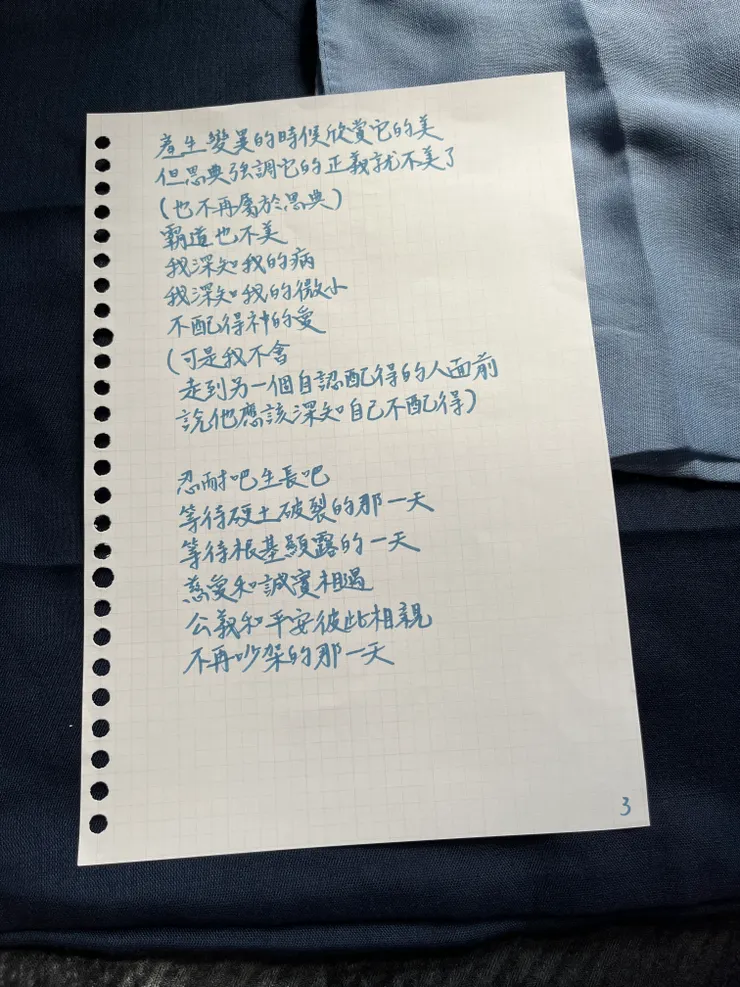 產生變異的時候欣賞它的美
但恩典強調它的正義就不美了
(也不再屬於恩典)
霸道也不美
我深知我的病
我深知我的微小
不配得神的愛
(可是我不會
走到另一個自認配得的人面前
說他應該深知自己不配得)
忍耐吧生長吧
等待硬土破裂的那一天
等待根基顯露的一天
慈愛和誠實相遇
公義和平安彼此相親
不再吵架的那一天
3